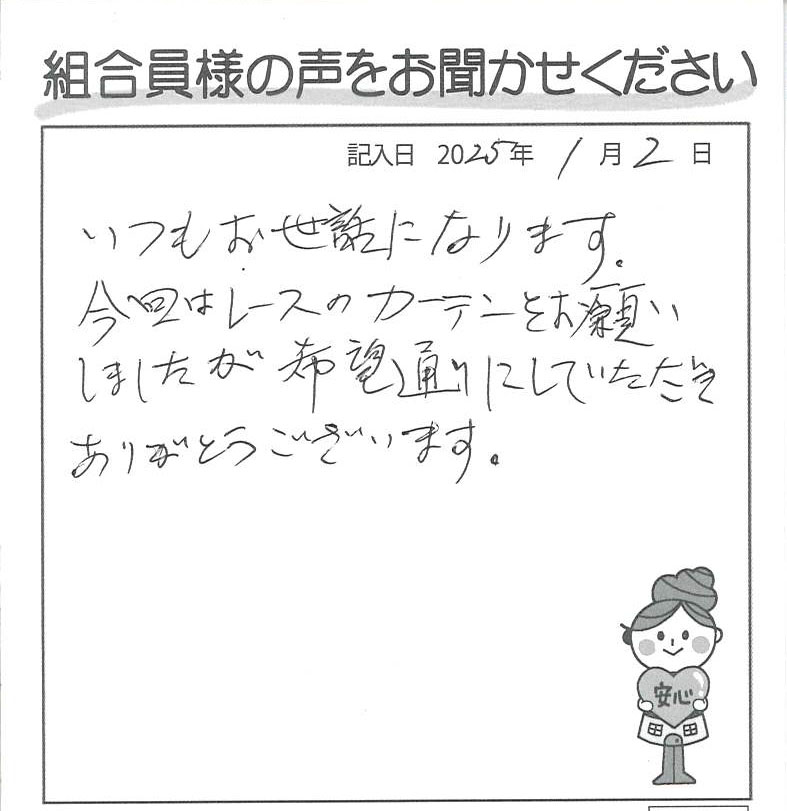 組合員様の声をお聞かせください
記入日 2025年 1月2日
いつもお世話になります。
今回はレースのカーテンをお願い
しましたが希望通りにしていただき
ありがとうございます。
安心